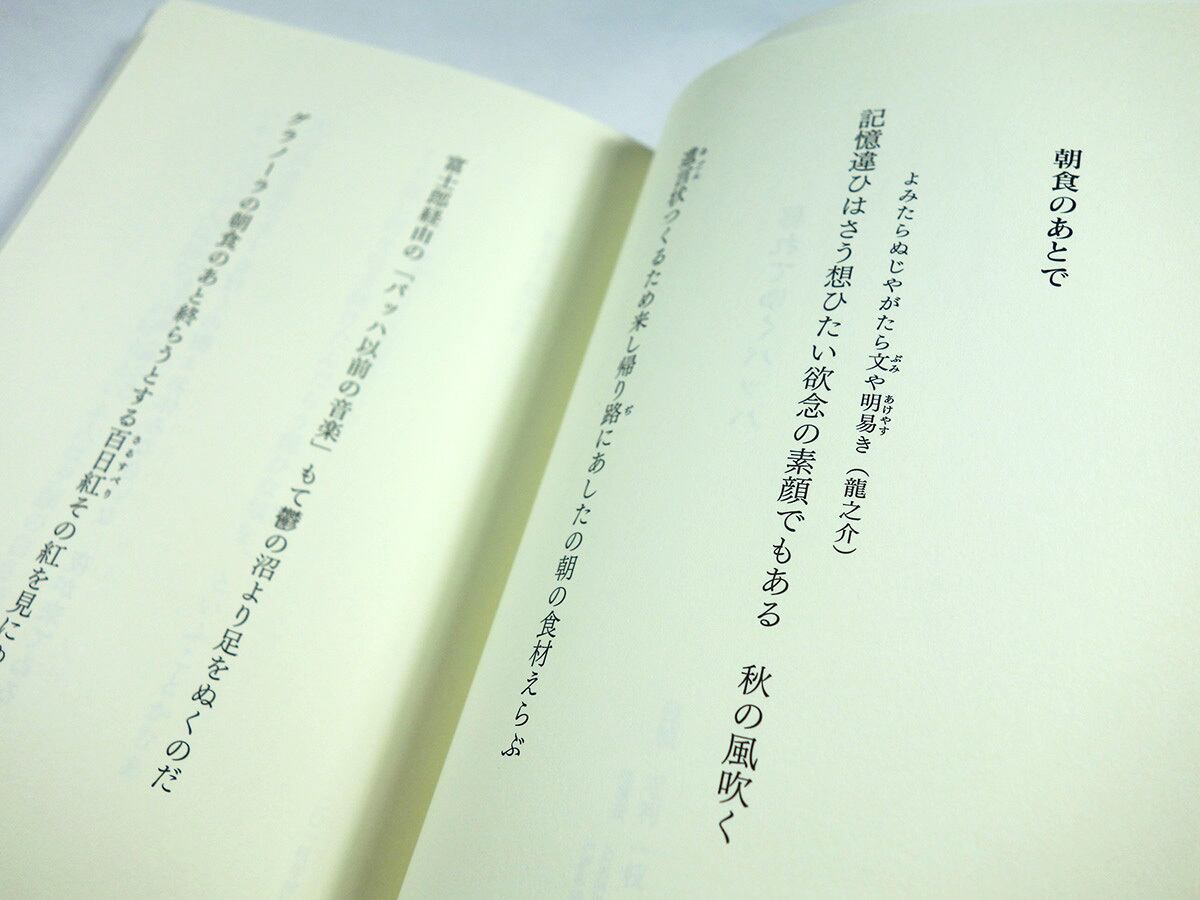 朝食のあとで
よみたらぬじやがたら文や明易き(龍之介)
ぶみ
あけやす
記憶違ひはさう想ひたい欲念の素顔でもある 秋の風吹く
状つくるため来し帰り路にあしたの朝の食材えらぶ
ぢ
富士郎経由の「バッハ以前の音楽」もて鬱の沼より足をぬくのだ
グラノーラの朝食のあと終らうとする百日紅その紅を見に
さるすべり